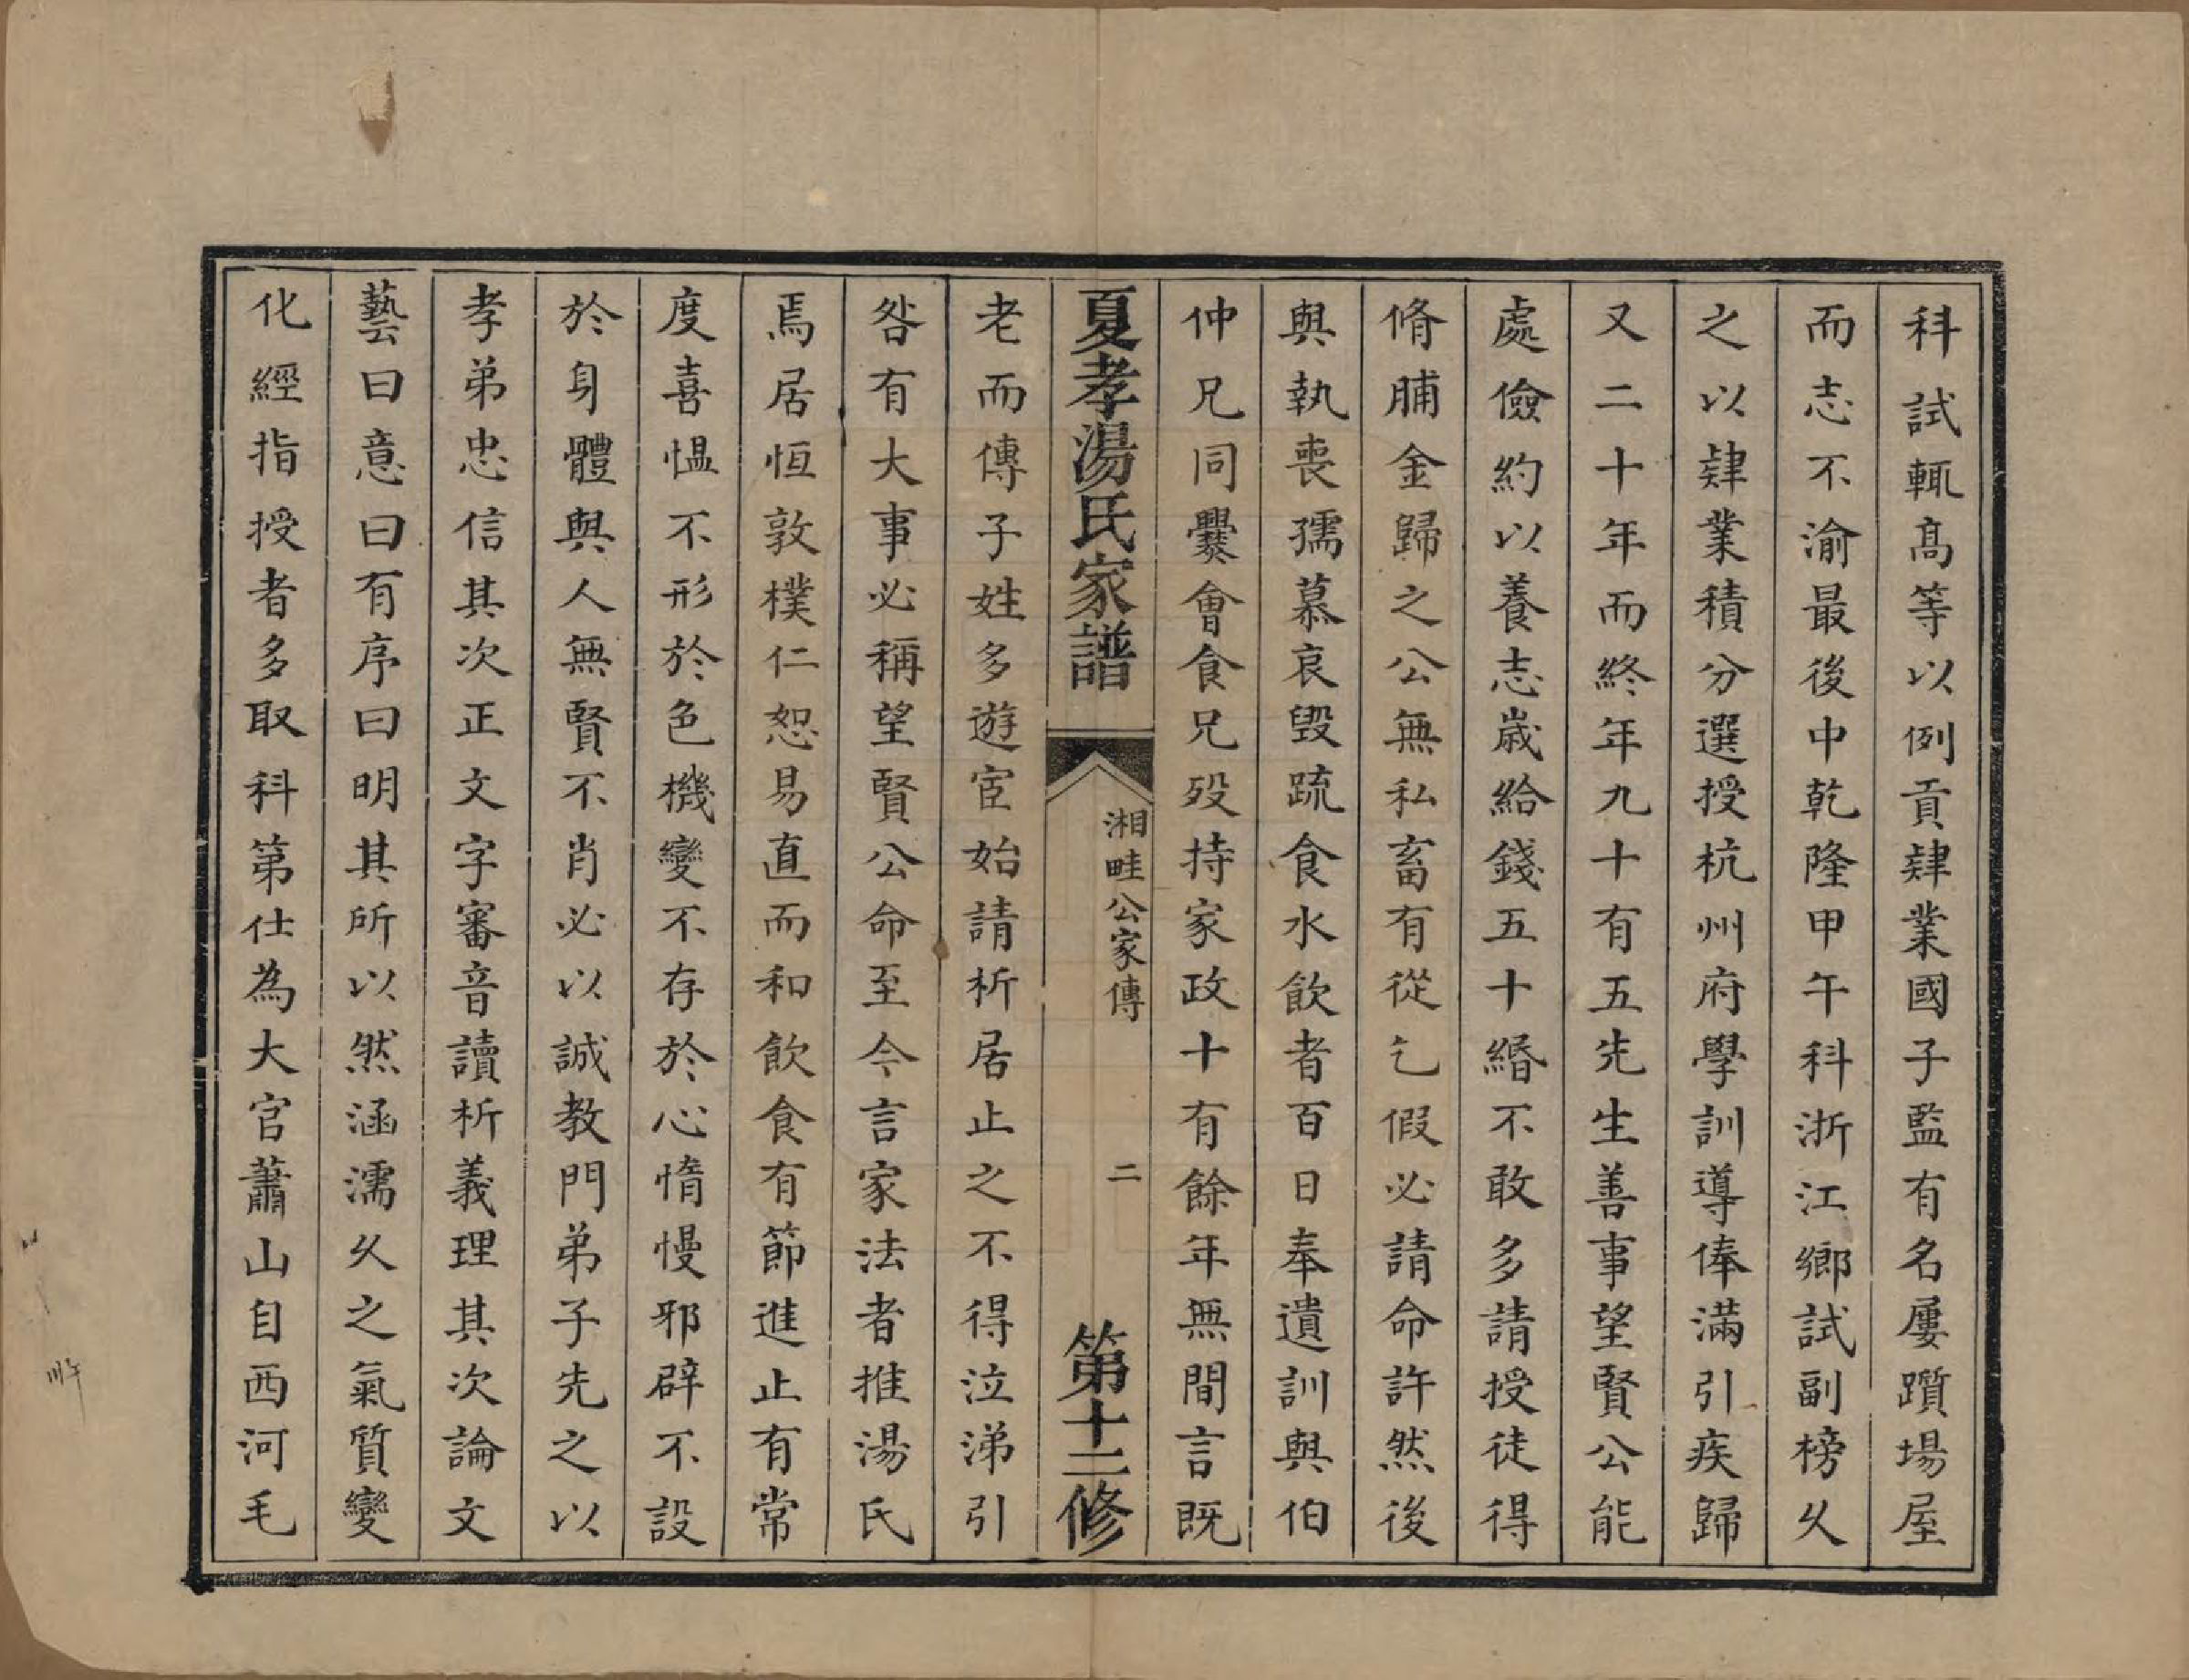 科試輒高等以例貢肄業國子監有名屢躓場屋
而志不渝最後中乾隆甲午科浙江鄉試副榜久
之以肄業積分選授杭州府學訓導俸滿引疾歸
又二十年而終年九十有五先生善事望賢公能
處儉約以養志歲給錢五十緡不敢多請授徒得
脩脯金歸之公無私畜有從乞假必請命許然後
與執喪孺慕哀毀疏食水飲者百日奉遺訓與伯
仲兄同爨會食兄歿持家政十有餘年無間言既
夏孝湯氏家譜
湘畦公家傳
二
第十二修
老而傳子姓多遊宦始請析居止之不得泣涕引
咎有大事必稱望賢公命至今言家法者推湯氏
焉居恒敦樸仁恕易直而和飲食有節進止有常
度喜慍不形於色機變不存於心惰慢邪辟不設
於身體與人無賢不肖必以誠教門弟子先之以
孝弟忠信其次正文字審音讀析義理其次論文
藝曰意曰有序曰明其所以然涵濡久之氣質變
化經指授者多取科第仕為大官蕭山自西河毛